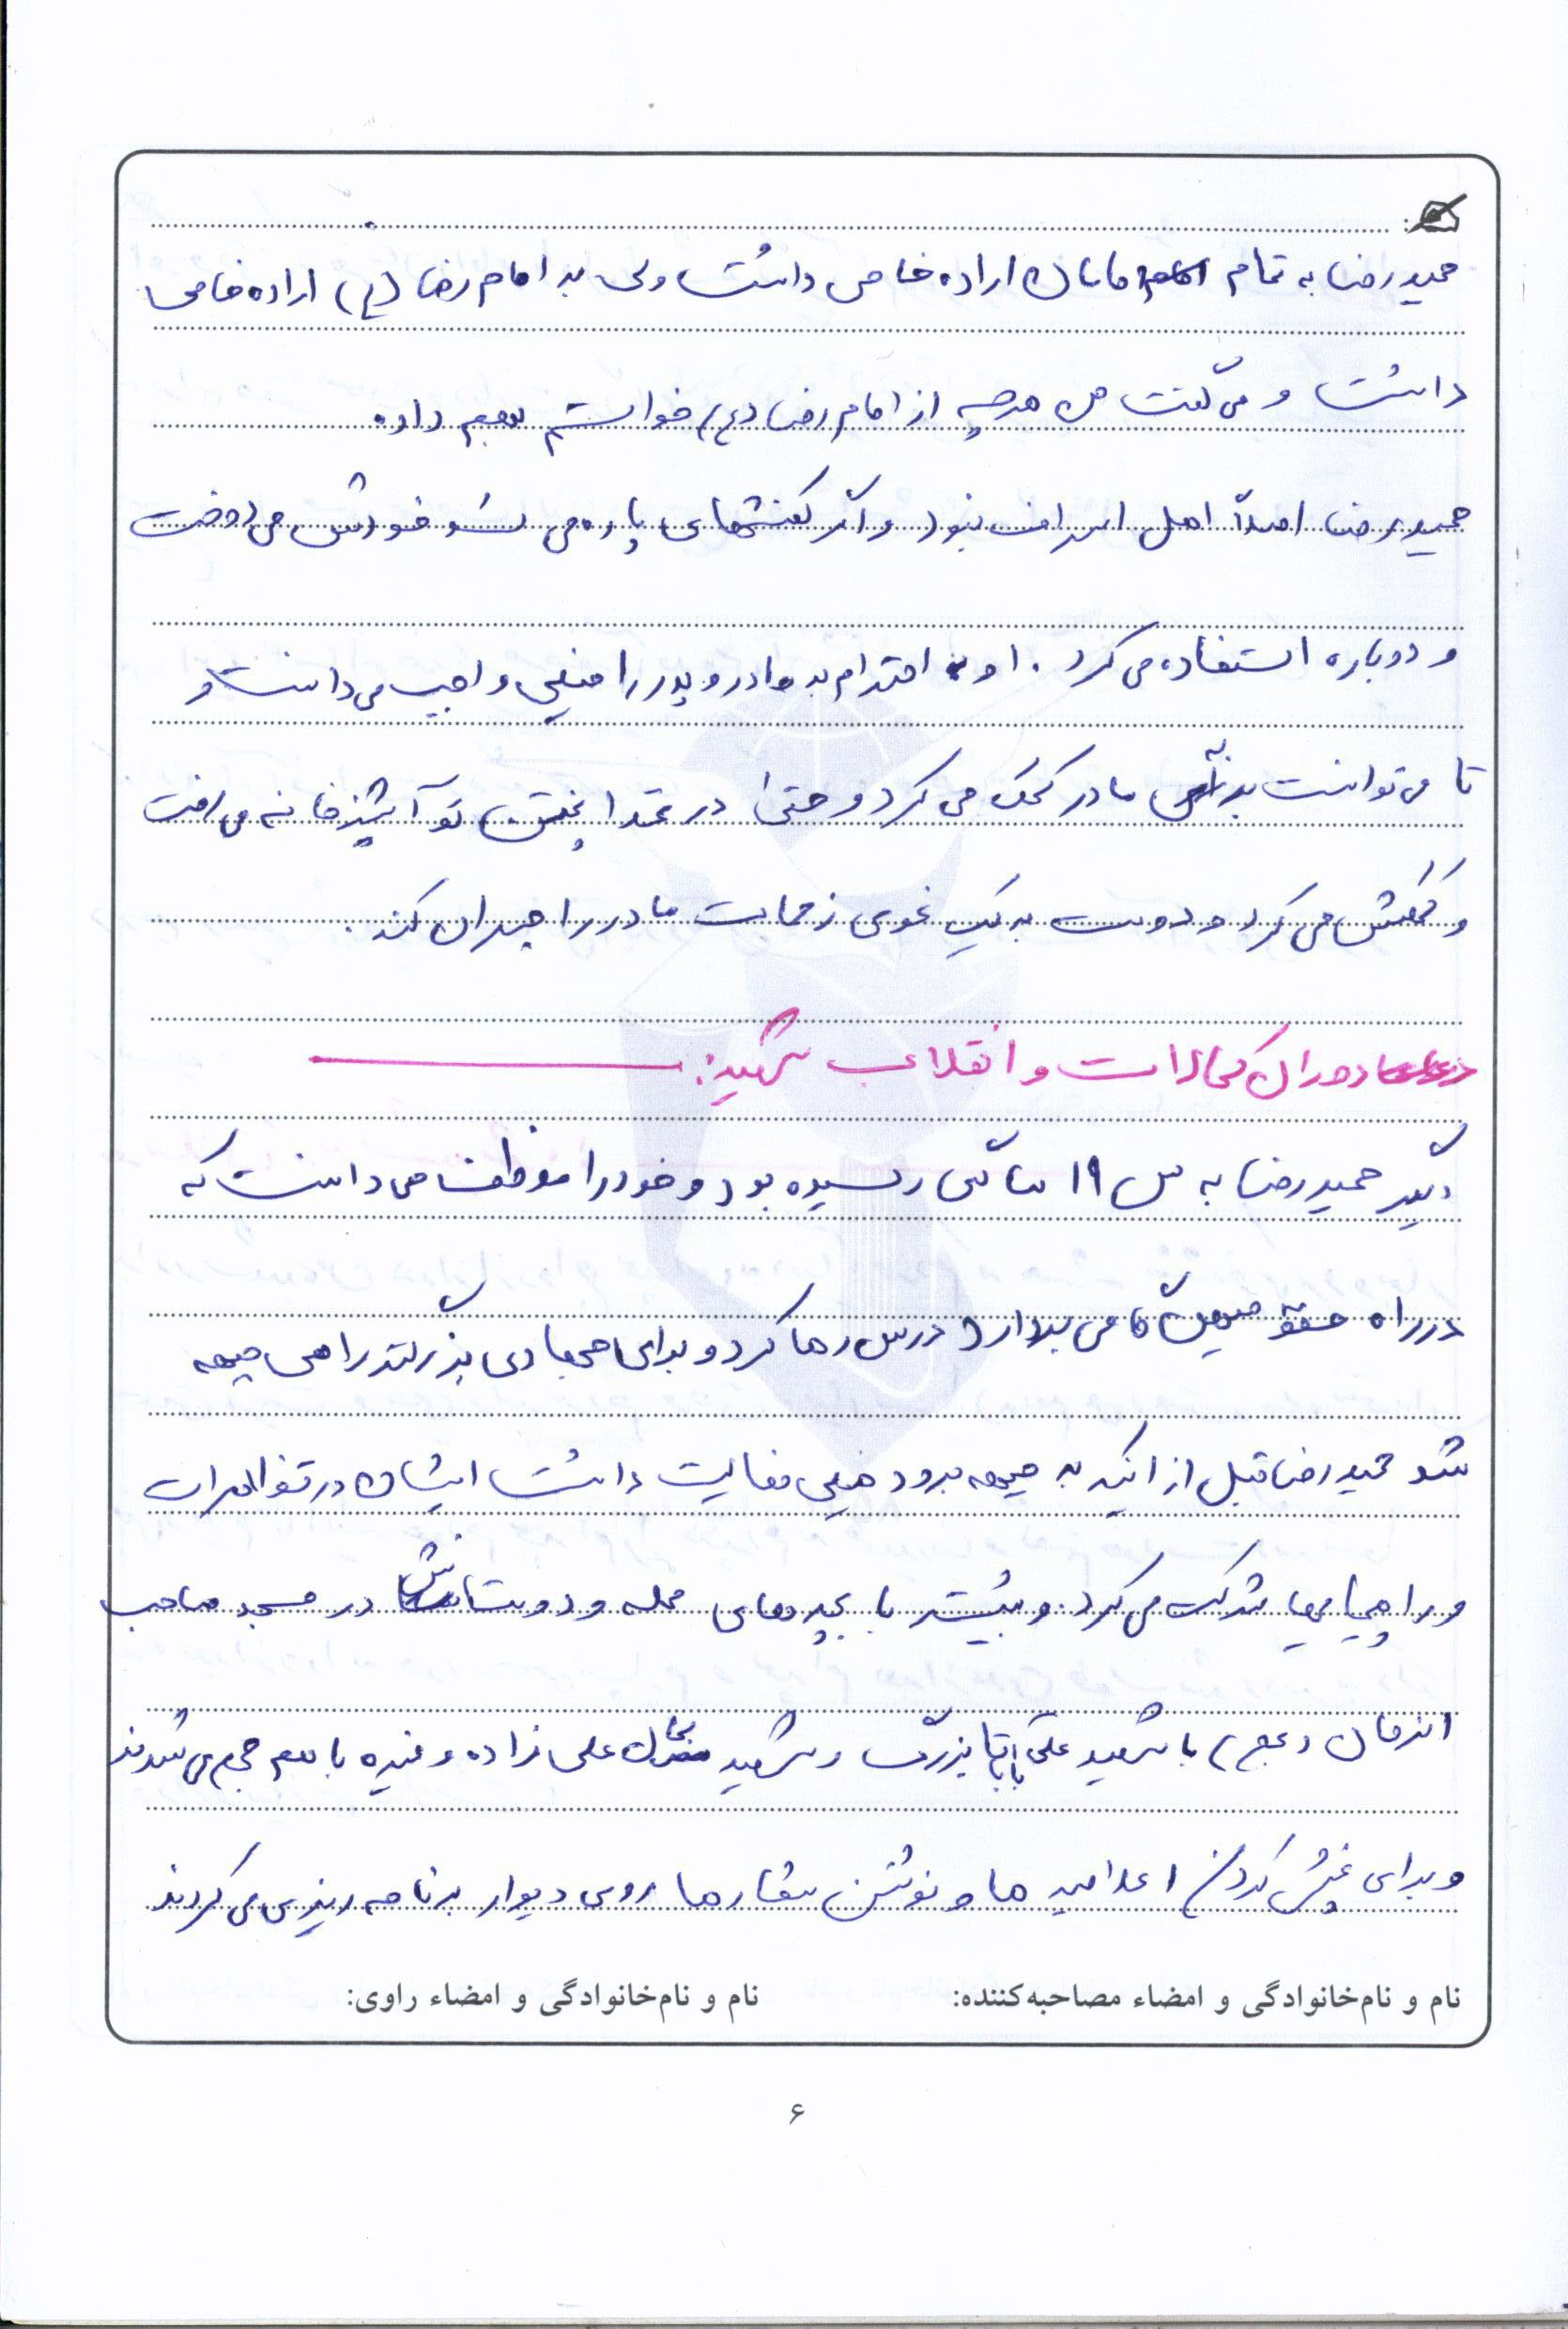 حمیدرضا به تمام امامان اراده خاصی داشت ولی به امام رضا (ع) اراده خاصی
داشت و می‌گفت من هرچه از امام رضا (ع) خواستم بهم داده
حمیدرضا اصلاً اهل اسراف نبود و اگر کفشهای پاره می شد خودش می دوخت
و دوباره استفاده می کرد . او احترام به مادر و پدر را خیلی واجب می دانست و
تا می توانست به مادر کمک می کرد و حتی در غذا پختن تو آشپزخانه می رفت
و کمکش می کرد و دوست به یک نحوی زحمات مادر را جبران کند .
دوران مبارزات و انقلاب شهید:
دیگر حمیدرضا به سن ۱۹ سالگی رسیده بود و خود را موظف می دانست که
در راه حق گام بردارد درس رها کرد و برای جهادی بزرگتر راهی جبهه
شد حمیدرضا قبل از اینکه به جبهه برود خیلی فعالیت داشت ایشان در تظاهرات
و راهپیمایی‌ها شرکت می کرد . و بیشتر با بچه‌های محله و دوستانش در مسجد صاحب
الزمان (عج) با شهید علی بابا بزرگ و شهید علی زاده و غیره با هم جمع می شدند
و برای پخش کردن اعلامیه ها و نوشتن شعارها روی دیوار برنامه ریزی می کردند
نام و نام‌خانوادگی و امضاء مصاحبه‌کننده: نام و نام‌خانوادگی و امضاء راوی:
۶